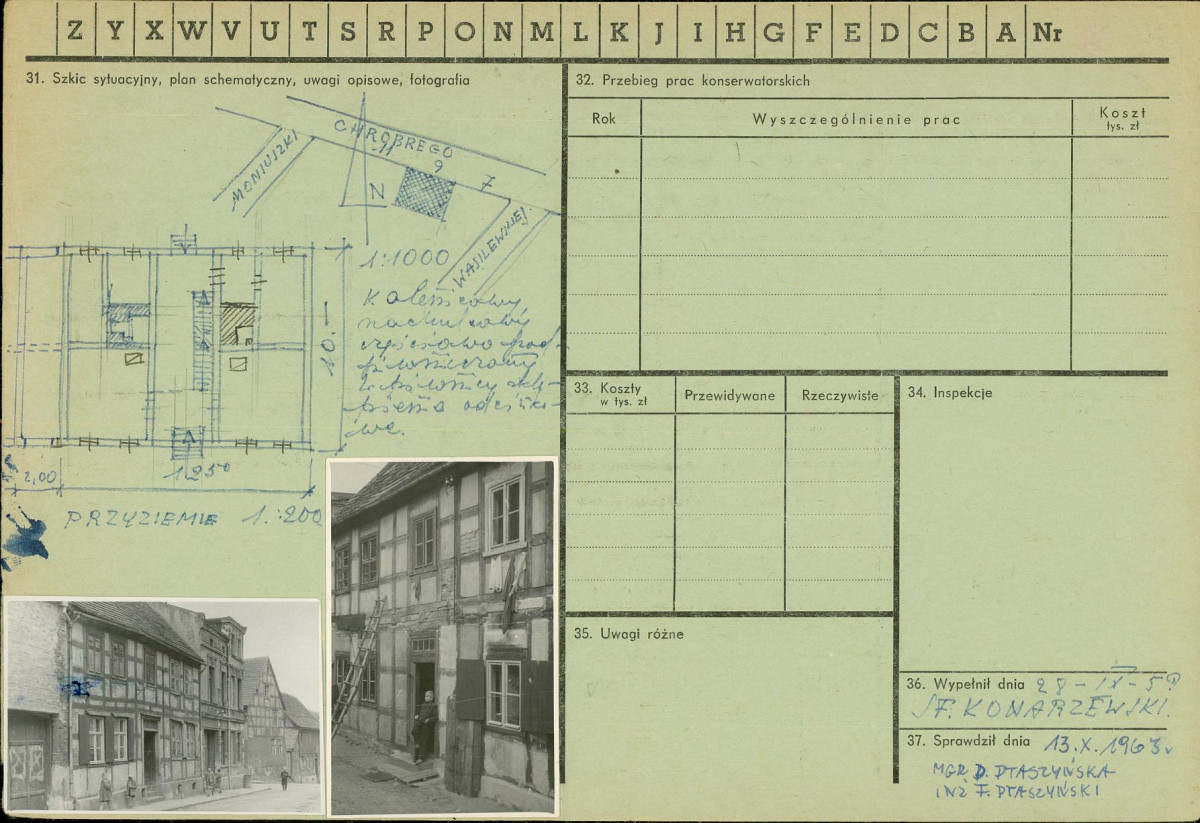 Z Y X W V U T S R P O N M L K J I H G F E D C B A Nr
31. Szkic sytuacyjny, plan schematyczny, uwagi opisowe, fotografia
CHROBREGO
MONIUSZKI
11
9
7
N
WASILEWSKIEJ
1:1000
częściowo pod-
piwniczony
10.—
2,00
1250
PRZYZIEMIE 1:200
32. Przebieg prac konserwatorskich
Rok
Wyszczególnienie prac
Koszt
tys. zł
33. Koszty
w tys. zł
Przewidywane
Rzeczywiste
34. Inspekcje
35. Uwagi różne
36. Wypełnił dnia 28-IX-59
ST. KONARZEWSKI.
37. Sprawdził dnia 13.X.1963
MGR D. PTASZYŃSKA
INŻ F. PTASZYŃSKI